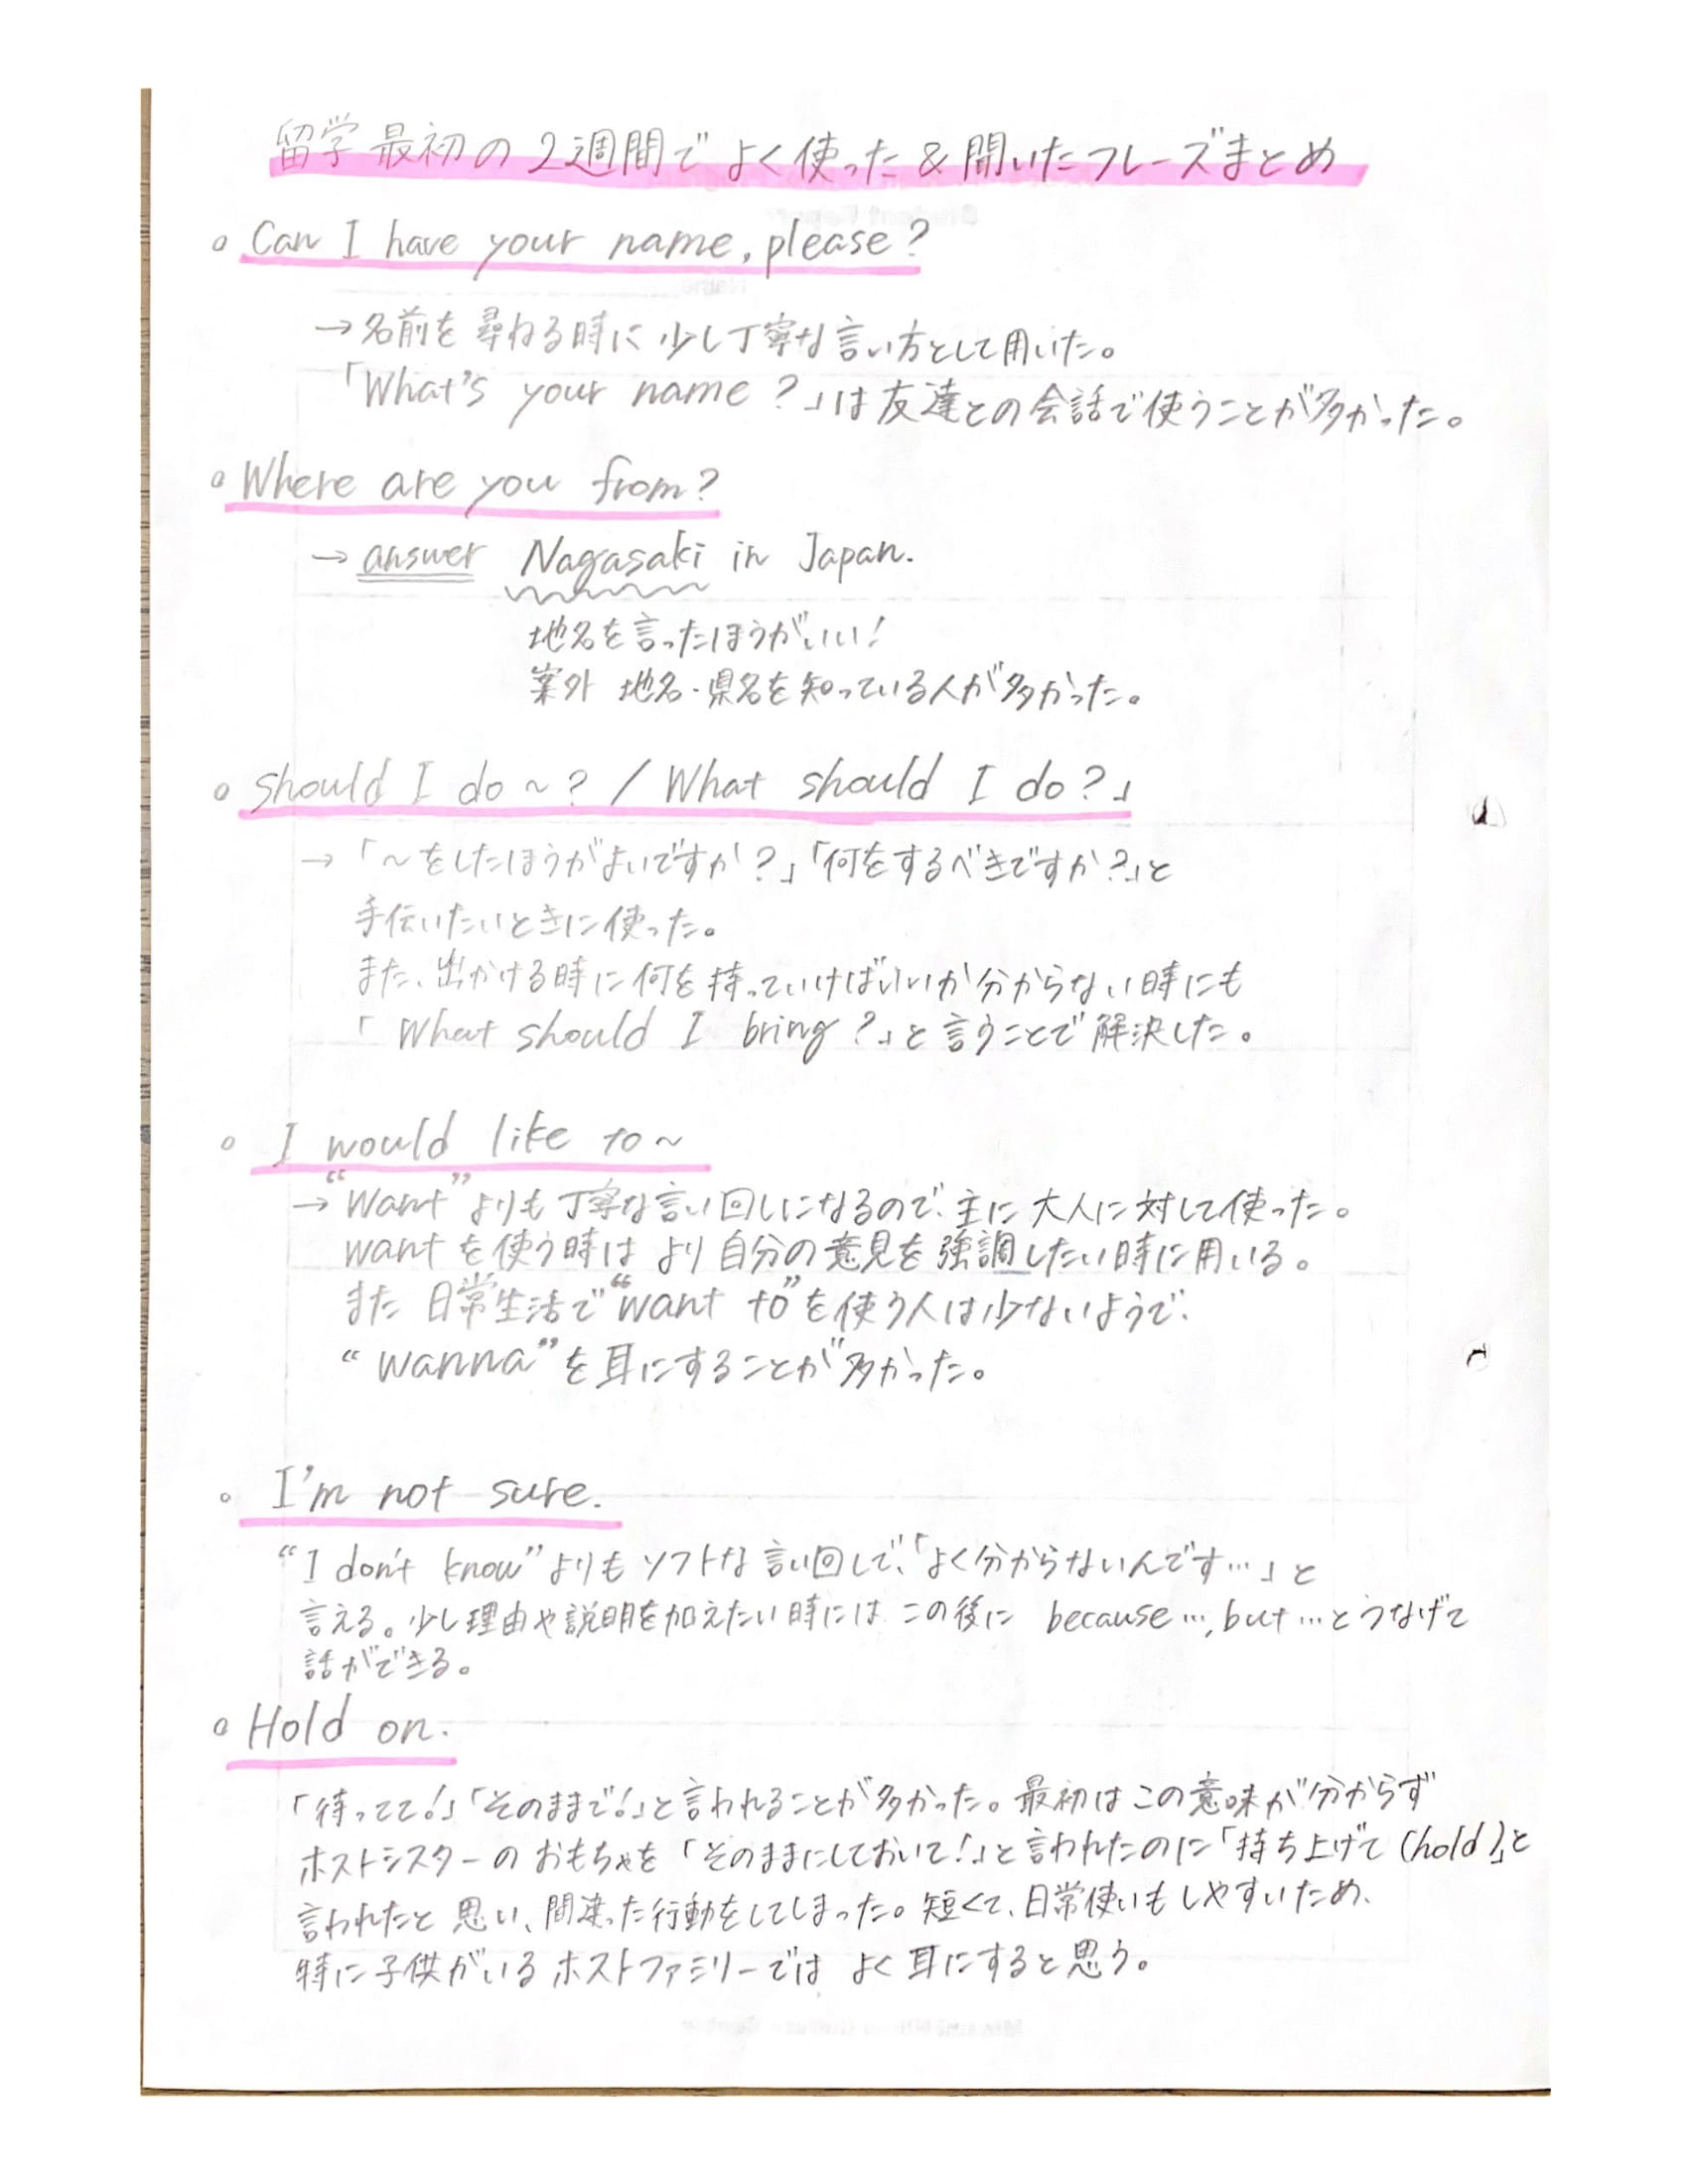 留学最初の2週間でよく使った&聞いたフレーズまとめ
○ Can I have your name, please?
→名前を尋ねる時に少し丁寧な言い方として用いた。
「What's your name?」は友達との会話で使うことが多かった。
○ Where are you from?
→ answer Nagasaki in Japan.
地名を言ったほうがいい!
案外 地名・県名を知っている人が多かった。
○ Should I do ~? / What should I do?」
→「~をしたほうがよいですか?」「何をするべきですか?」と
手伝いたいときに使った。
また、出かける時に何を持っていけばいいか分からない時にも
「What should I bring?」と言うことで解決した。
○ I would like to ~
→ “want”よりも丁寧な言い回しになるので、主に大人に対して使った。
wantを使う時はより自分の意見を強調したい時に用いる。
また日常生活で“want to”を使う人は少ないようで、
“wanna”を耳にすることが多かった。
○ I'm not sure.
“I don't know”よりもソフトな言い回しで、「よく分からないんです…」と
言える。少し理由や説明を加えたい時にはこの後に because…, but…とつなげて
話ができる。
○ Hold on.
「待ってて!」「そのままで!」と言われることが多かった。最初はこの意味が分からず
ホストシスターのおもちゃを「そのままにしておいて!」と言われたのに「持ち上げて(hold)」と
言われたと思い、間違った行動をしてしまった。短くて、日常使いもしやすいため、
特に子供がいるホストファミリーではよく耳にすると思う。